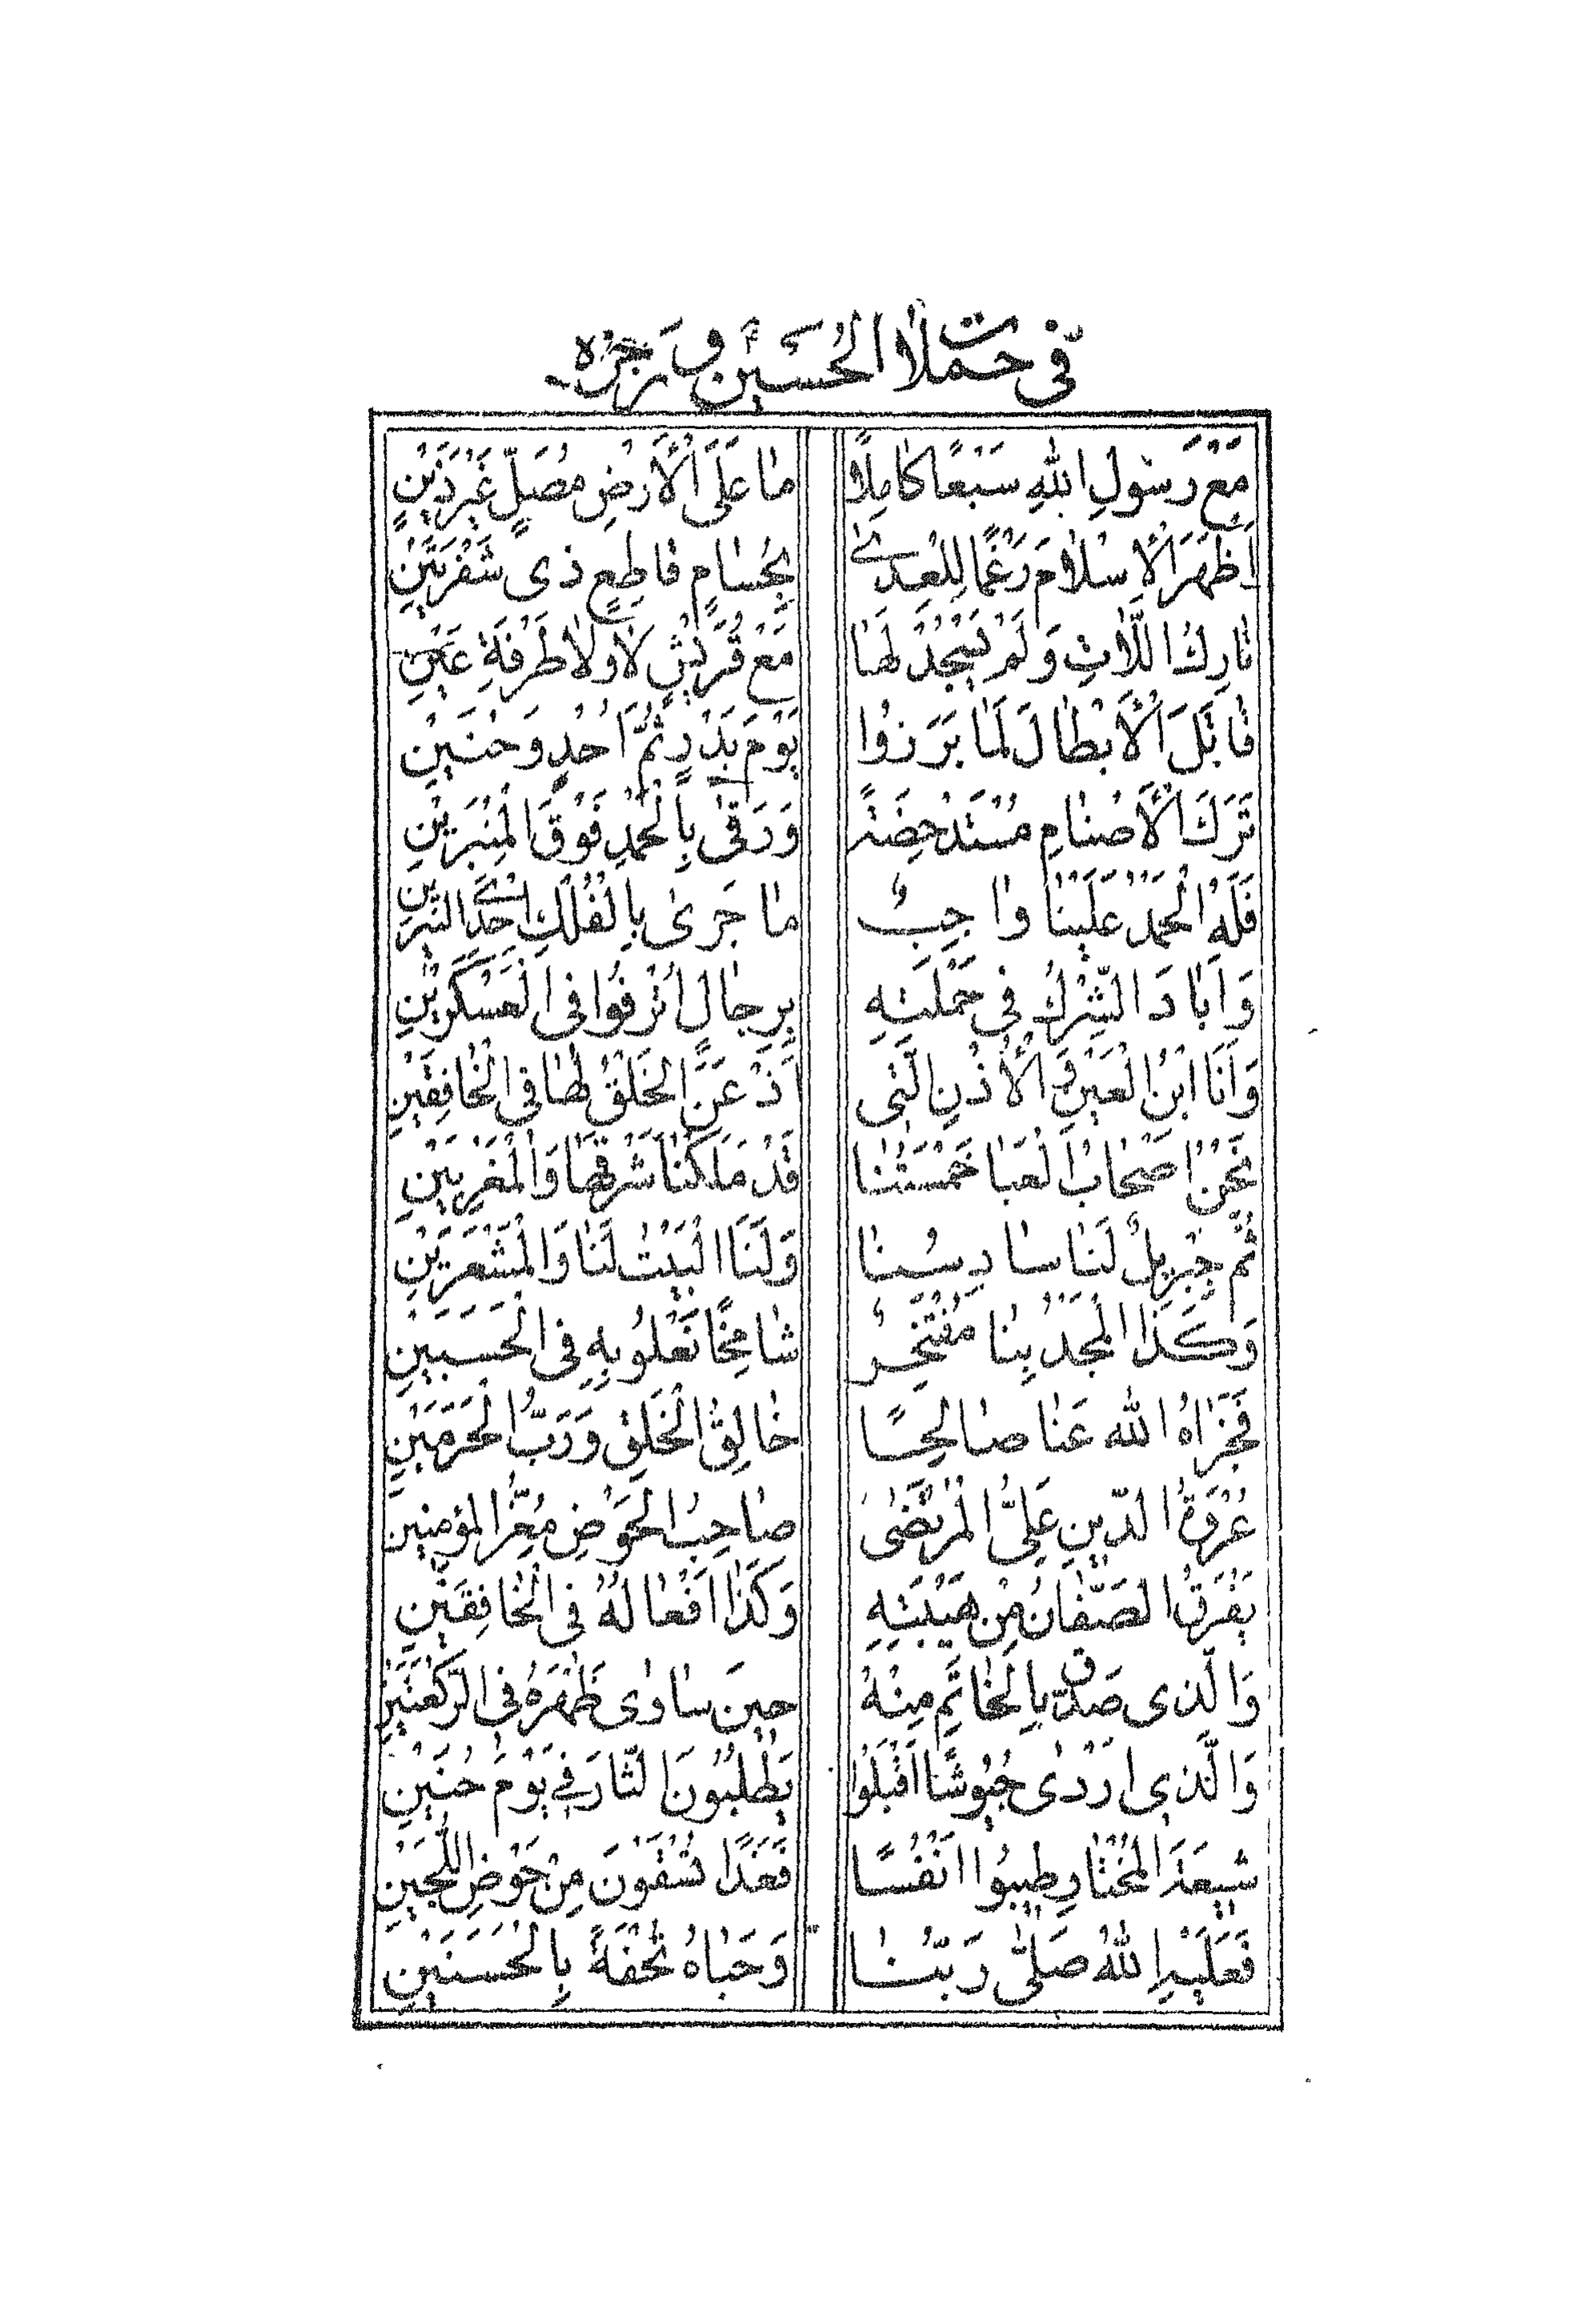 فى حملات الحُسَين وَرَجزه
مَعْ رَسُولِ اللهِ سَبْعًا كامِلًا ما عَلَى الْأَرْضِ مُصَلٍّ غَيْرَ ذَيْنِ
اَظْهَرَ الْاِسْلامَ رَغْمًا لِلْعِدىٰ بِحُسامٍ قاطِعٍ ذى شَفْرَتَيْنِ
تارِكُ اللّاتِ وَلَمْ يَسْجُدْ لَها مَعْ قُرَيْشٍ لا وَلا طَرْفَةَ عَيْنِ
قاتَلَ الْأَبْطالَ لَمّا بَرَزُوا يَوْمَ بَدْرٍ ثُمَّ اُحُدٍ وَحُنَيْنِ
تَرَكَ الْأَصْنامِ مُسْتَدْحِضَةً وَرَقىٰ بِالْحَمْدِ فَوْقَ الْمِنْبَرَيْنِ
فَلَهُ الْحَمْدُ عَلَيْنا واجِبٌ ما جَرىٰ بِالْفُلْكِ اِحْدَى النَّيِّرَيْنِ
وَاَبادَ الشِّرْكَ فى حَمْلَتِهِ بِرِجالٍ اُتْرِفُوا فى الْعَسْكَرَيْنِ
وَاَنَا ابْنُ الْعَيْنِ وَالْأُذْنِ الَّتى اَذْعَنَ الْخَلْقُ لَها فى الْخافِقَيْنِ
نَحْنُ اَصْحابُ الْعَبا خَمْسَتُنا قَدْ مَلَكْنا شَرْقَها وَالْمَغْرِبَيْنِ
ثُمَّ جِبْرِيلٌ لَنا سادِسُنا وَلَنَا الْبَيْتُ لَنا وَالْمَشْعَرَيْنِ
وَكَذَا الْمَجْدُ بِنا مُفْتَخِرٌ شامِخًا نَعْلُو بِهِ فى الْحَسَبَيْنِ
فَجَزاهُ اللهُ عَنّا صالِحًا خالِقُ الْخَلْقِ وَرَبُّ الْحَرَمَيْنِ
عُرْوَةُ الدّينِ عَلِىُّ الْمُرْتَضىٰ صاحِبُ الْحَوْضِ مُعِزُّ المؤمنين
يَفْرَقُ الصَّفّانُ مِنْ هَيْبَتِهِ وَكَذا اَفْعالُهُ فى الْخافِقَيْنِ
وَالَّذى صَدَّقَ بِالْخاتَمِ مِنْهُ حينَ ساوىٰ ظَهْرَهُ فى الرَّكْعَتَيْنِ
وَالَّذى اَرْدىٰ جُيُوشًا اَقْبَلُوا يَطْلُبُونَ الثّارَ فى يَوْمِ حُنَيْنِ
شيعَةَ الْمُخْتارِ طيبُوا اَنْفُسًا فَغَدًا تُسْقَوْنَ مِنْ حَوْضِ اللُّجَيْنِ
فَعَلَيْهِ اللهُ صَلّىٰ رَبُّنا وَحَباهُ تُحْفَةً بِالْحَسَنَيْنِ